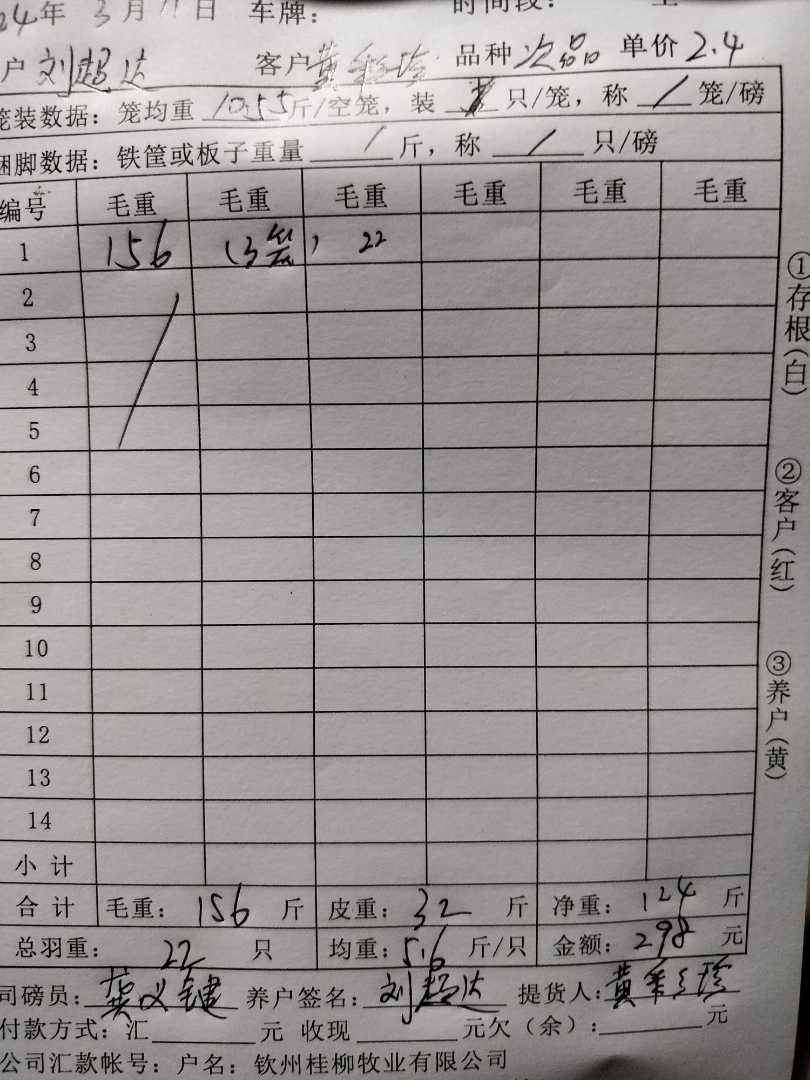 24年 3月11日 车牌: 时间段:
户 刘超达 客户 黄彩珍 品种 次品 单价 2.4
笼装数据: 笼均重 10.55 斤/空笼, 装 只/笼, 称 / 笼/磅
捆脚数据: 铁筐或板子重量 / 斤, 称 / 只/磅
编号 毛重 毛重 毛重 毛重 毛重 毛重
1 156 (3笼) 22
2
3
4
5
6
7
8
9
10
11
12
13
14
小计
合计 毛重: 156 斤 皮重: 32 斤 净重: 124 斤
总羽重: 22 只 均重: 5.6 斤/只 金额: 298 元
司磅员: 龚义键 养户签名: 刘超达 提货人: 黄彩珍
付款方式: 汇 元 收现 元欠(余): 元
公司汇款帐号: 户名: 钦州桂柳牧业有限公司
①存根(白)
②客户(红)
③养户(黄)